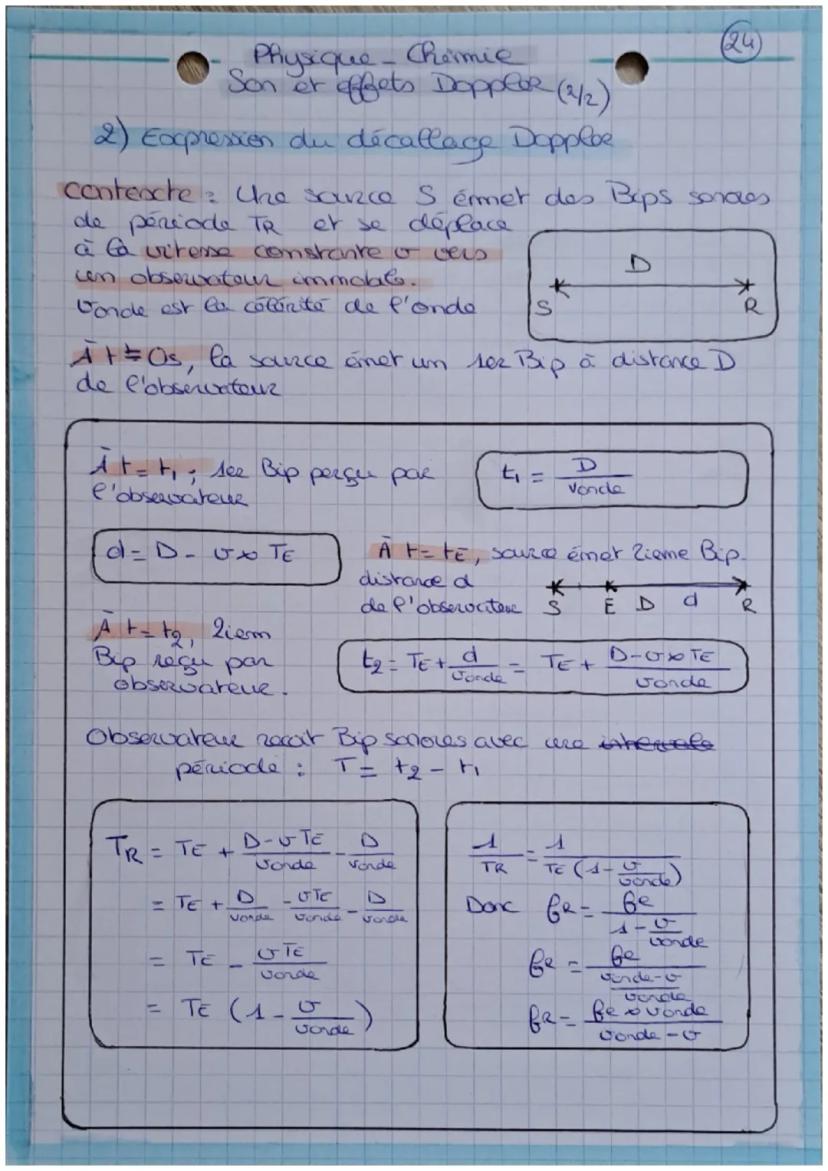 24
Physique - Chimie
Son et effets Doppler (2/2)
2) Expression du décallage Doppler
contexte : Une source S émmet des Bips sonores
de période TR et se déplace
à la vitesse constante v vers
un observateur immobile.
Vonde est la célérité de l'onde
D
S R
À t = 0s, la source émet un 1er Bip à distance D
de l'observateur
À t = t1 ; 1er Bip perçu par
l'observateur
t1 = D / vonde
d = D - v × TE
À t = tE, source émet 2ieme Bip.
distance d
de l'observateur
S E D d R
À t = t2, 2iem
Bip reçu par
observateur.
t2 = TE + d / vonde = TE + (D - v × TE) / vonde
Observateur recoit Bip sonores avec une intervale
période : T = t2 - t1
TR = TE + (D - v TE) / vonde - D / vonde
= TE + D / vonde - v TE / vonde - D / vonde
= TE - v TE / vonde
= TE (1 - v / vonde)
1 / TR = 1 / (TE (1 - v / vonde))
Donc fR = fe / (1 - v / vonde)
fR = fe / ((vonde - v) / vonde)
fR = fe × vonde / (vonde - v)